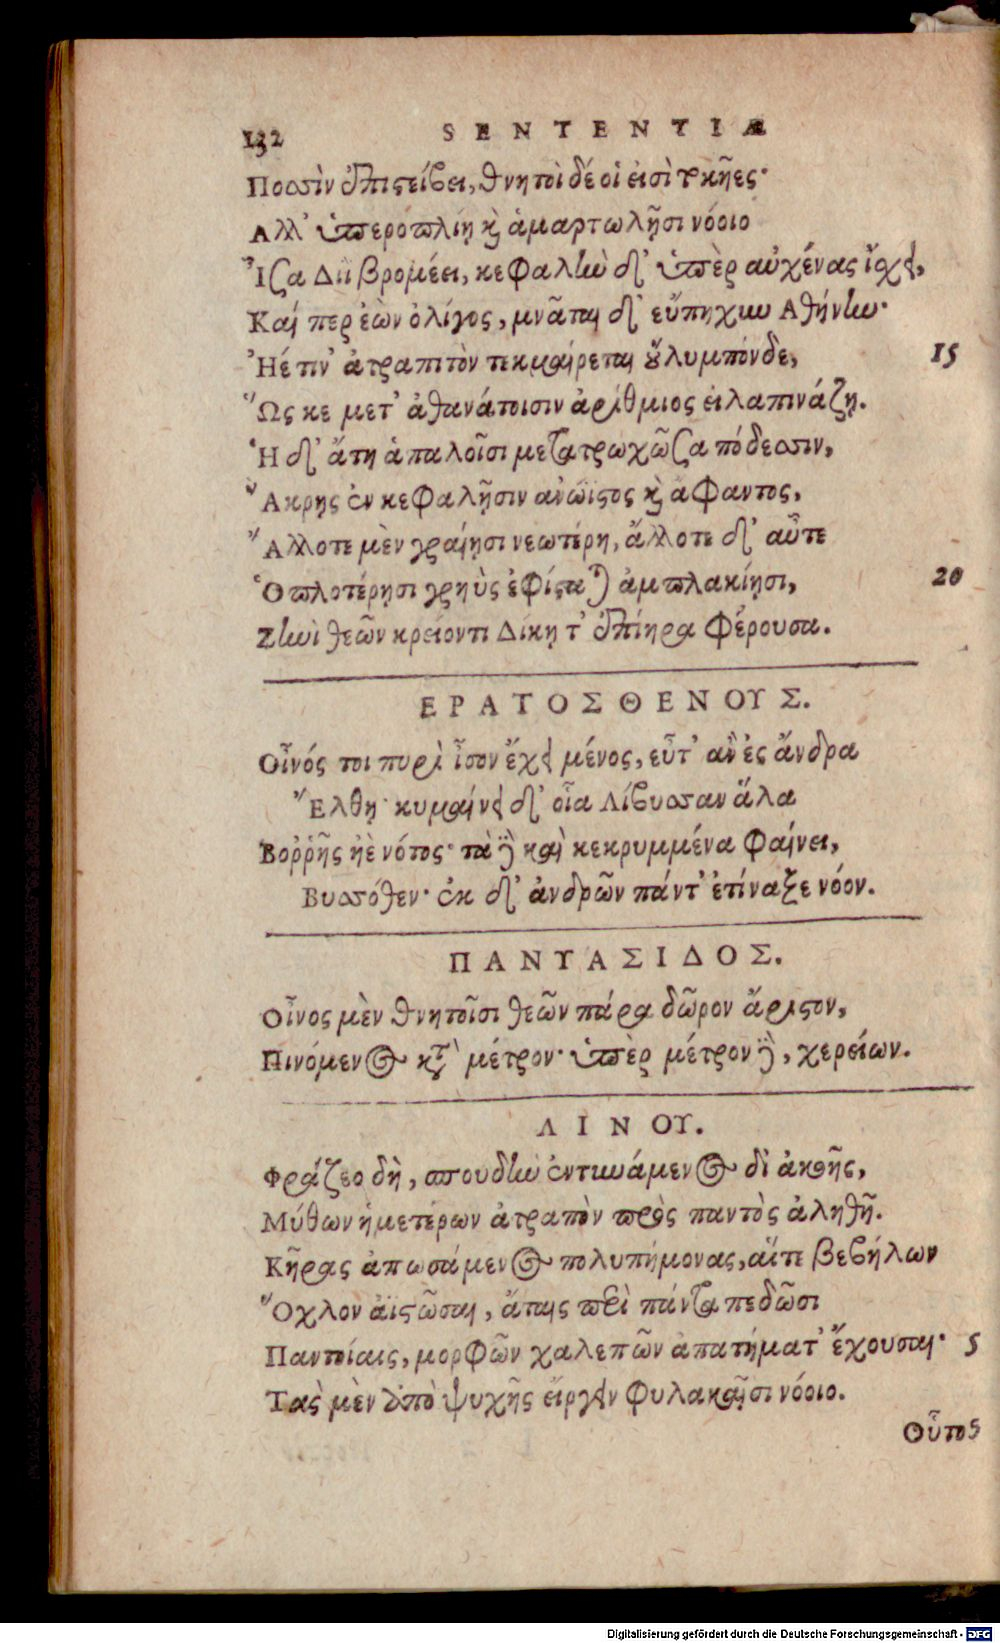 132 SENTENTIÆ
Ποσσὶν ἐπιστείβει, θνητοὶ δέ οἱ εἰσὶ τοκῆες·
Αλλ' ὑπεροπλίῃ καὶ ἁμαρτωλῇσι νόοιο
Ἶσα Διῒ βρομέει, κεφαλὴν δ' ὑπὲρ αὐχένας ἴσχει,
Καί περ ἐὼν ὀλίγος, μνᾶται δ' εὔπηχυν Αθήνην·
Ἠέ τιν' ἀτραπιτὸν τεκμαίρεται οὔλυμπόνδε, 15
Ὥς κε μετ' ἀθανάτοισιν ἀρίθμιος εἰλαπινάζῃ.
Ἡ δ' ἄτη ἁπαλοῖσι μετατρωχῶσα πόδεσσιν,
Ἄκρης ἐν κεφαλῇσιν ἀνώϊστος καὶ ἄφαντος,
Ἄλλοτε μὲν γραίῃσι νεωτέρη, ἄλλοτε δ' αὖτε
Ὁπλοτέρῃσι γρηῢς ἐφίσταται ἀμπλακίῃσι, 20
Ζηνὶ θεῶν κρείοντι Δίκῃ τ' ἐπίηρα φέρουσα.
ΕΡΑΤΟΣΘΕΝΟΥΣ.
Οἶνός τοι πυρὶ ἶσον ἔχει μένος, εὖτ' ἂν ἐς ἄνδρα
Ἔλθῃ· κυμαίνει δ' οἷα Λίβυσσαν ἅλα
Βοῤῥῆς ἠὲ νότος· τὰ δὲ καὶ κεκρυμμένα φαίνει,
Βυσσόθεν· ἐκ δ' ἀνδρῶν πάντ' ἐτίναξε νόον.
ΠΑΝΥΑΣΙΔΟΣ.
Οἶνος μὲν θνητοῖσι θεῶν πάρα δῶρον ἄριστον,
Πινόμενος κατὰ μέτρον· ὑπὲρ μέτρον δὲ, χερείων.
ΛΙΝΟΥ.
Φράζεο δὴ, σπουδὴν ἐντυνάμενος δι ἀκοῆς,
Μύθων ἡμετέρων ἀτραπὸν πρὸς παντὸς ἀληθῆ.
Κῆρας ἀπωσάμενος πολυπήμονας, αἵτε βεβήλων
Ὄχλον ἀϊστῶσαι, ἄταις περὶ πάντα πεδῶσι
Παντοίαις, μορφῶν χαλεπῶν ἀπατήματ' ἔχουσαι· 5
Τὰς μὲν ἀπὸ ψυχῆς εἴργειν φυλακαῖσι νόοιο.
Οὗτος
Digitalisierung gefördert durch die Deutsche Forschungsgemeinschaft - DFG